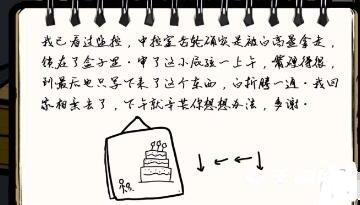 我已看过监控，中控室舌轮确实是被白高盖拿走，
锁在了盒子里。审了这小屁孩一上午，嘴硬得很，
到最后也只写下来了这个东西，白折腾一通。我回
家相亲去了，下午就辛苦你想想办法，多谢。
↓ ← ← ↓